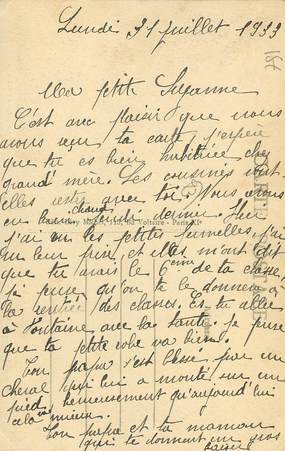 Lundi 31 juillet 1933
Ma petite Suzanne
C'est avec plaisir que nous
avons reçu ta carte, j'espère
que tu es bien habituée chez
grand'mère. Les cousines sont-
elles avec toi. Nous avons
eu bien chaud semaine dernière. Hier
j'ai vu les petites jumelles, j'ai
vu leur père, et elles m'ont dit
que tu avais le 6ème de ta classe,
je pense qu'on te le donnera à
la rentrée des classes. Es tu allée
à Fontaine avec ta tante. Je pense
que ta petite robe va bien.
Ton papa s'est blessé par un
cheval qui lui a monté sur un
pied, heureusement qu'aujourd'hui
cela va mieux.
Ton papa et ta maman
qui te donnent un gros
baiser